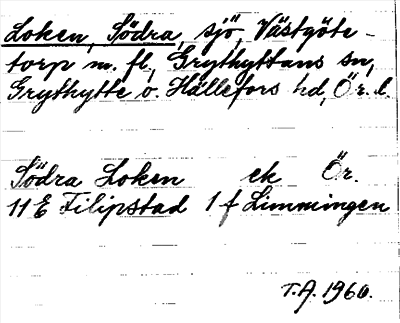 Loken, Södra, sjö, Västgöte-
torp m. fl., Grythyttans sn,
Grythytte o. Hällefors hd, Ör. l.
Södra Loken ek Ör.
11 E Filipstad 1 f Limmingen
T.A. 1960.